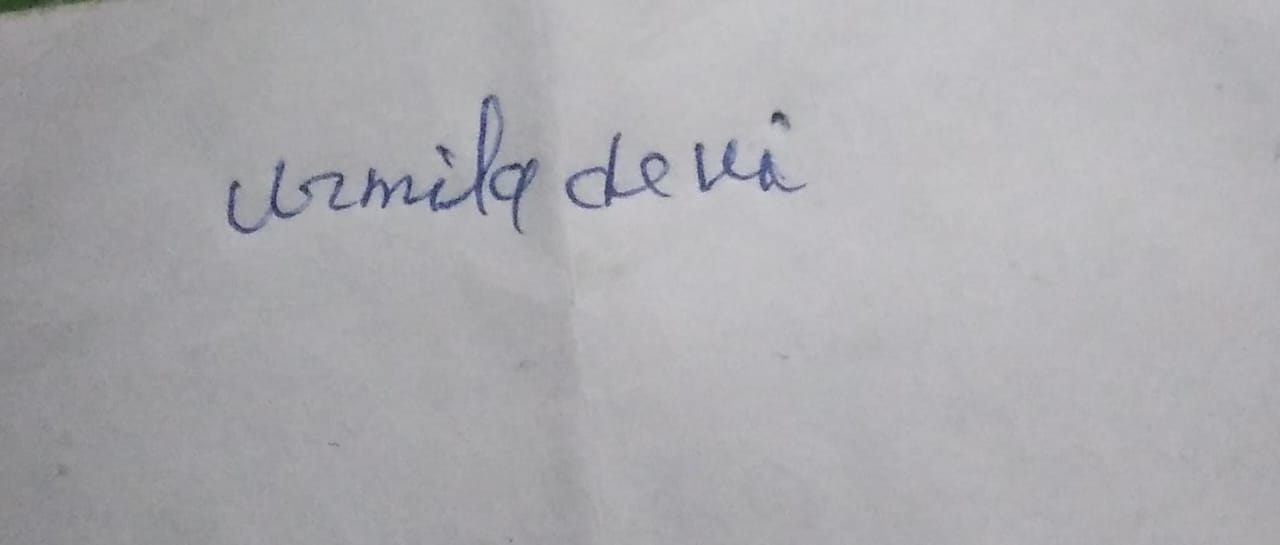 urmila devi